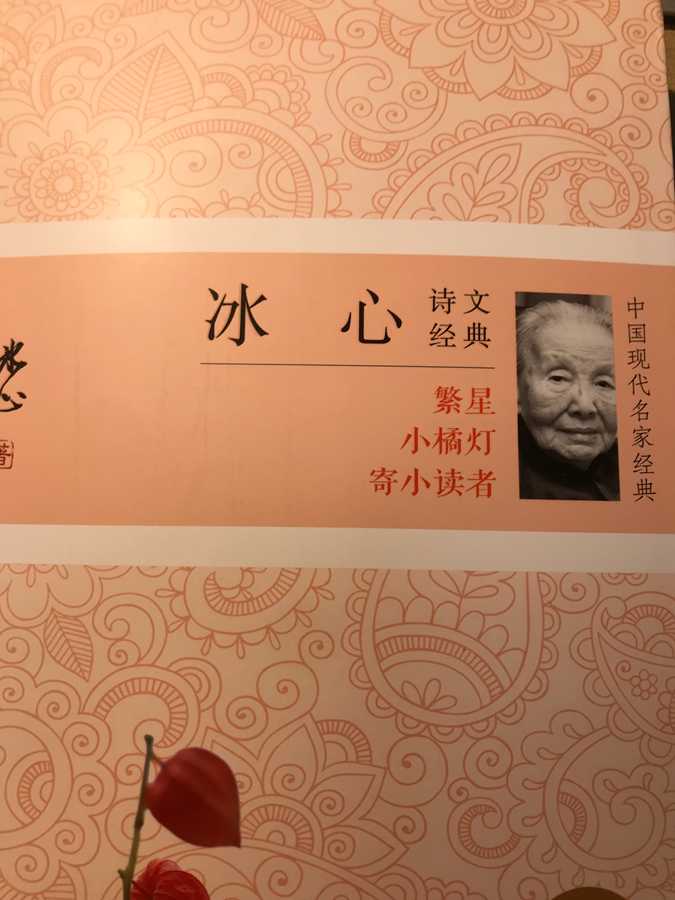 冰心 诗文经典
繁星
小橘灯
寄小读者
中国现代名家经典
冰心
著